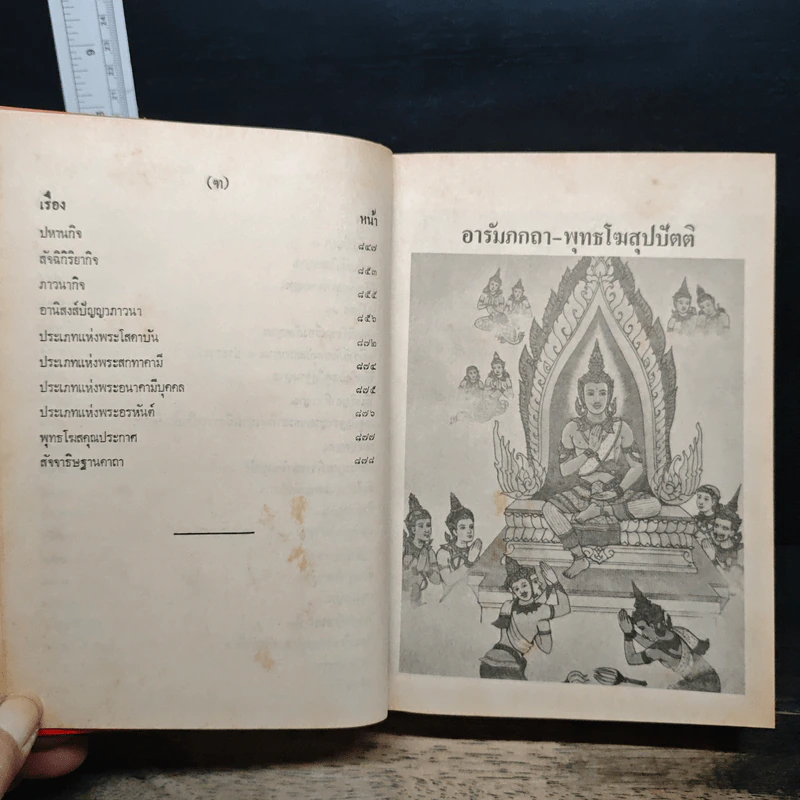 (ฑ)
เรื่อง
หน้า
ปหานกิจ ๘๔๗
สัจฉิกิริยากิจ ๘๕๓
ภาวนากิจ ๘๕๕
อานิสงส์ปัญญาภาวนา ๘๕๖
ประเภทแห่งพระโสดาบัน ๘๗๒
ประเภทแห่งพระสกทาคามี ๘๗๔
ประเภทแห่งพระอนาคามีบุคคล ๘๗๕
ประเภทแห่งพระอรหันต์ ๘๗๖
พุทธโฆสคุณประกาศ ๘๗๗
สัจจาธิษฐานคาถา ๘๗๘
อารัมภกถา-พุทธโฆสุปปัตติ